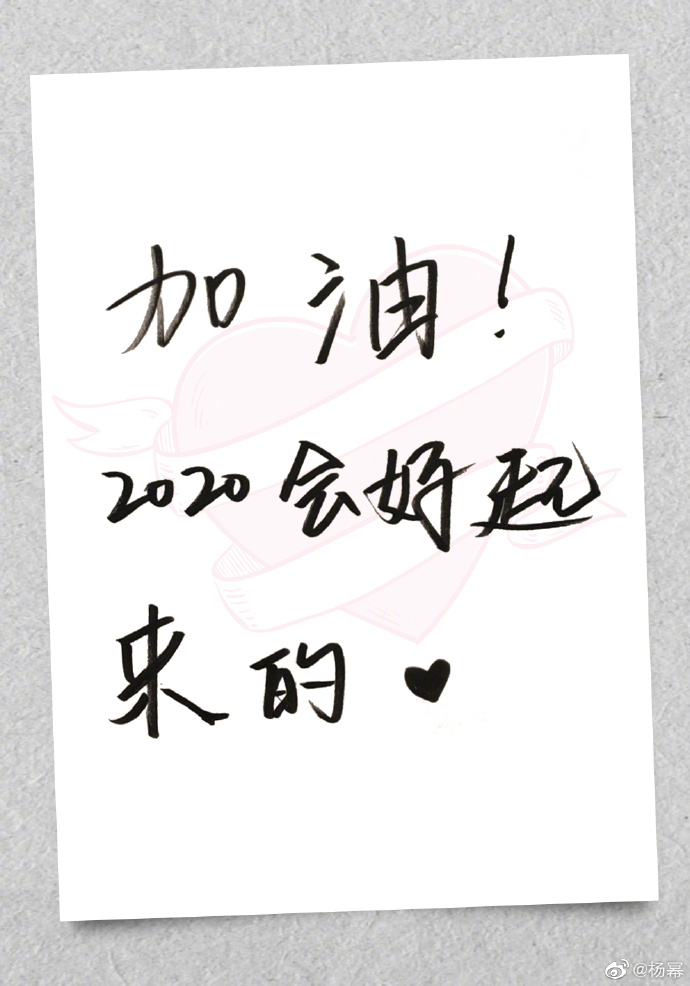 加油!
2020会好起
来的♥
@杨幂